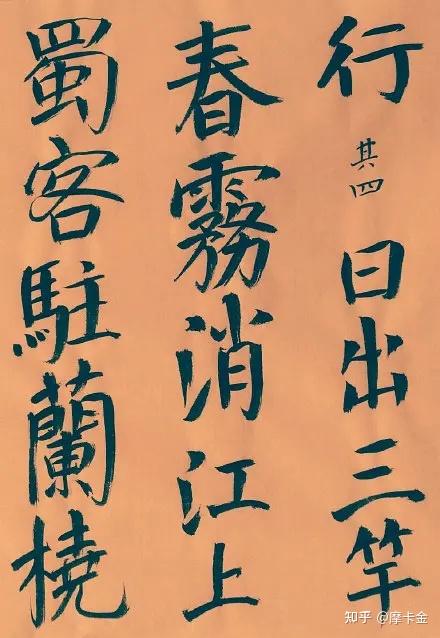 行 其四 日出三竿
春霧消江上
蜀客駐蘭橈
知乎 @摩卡金